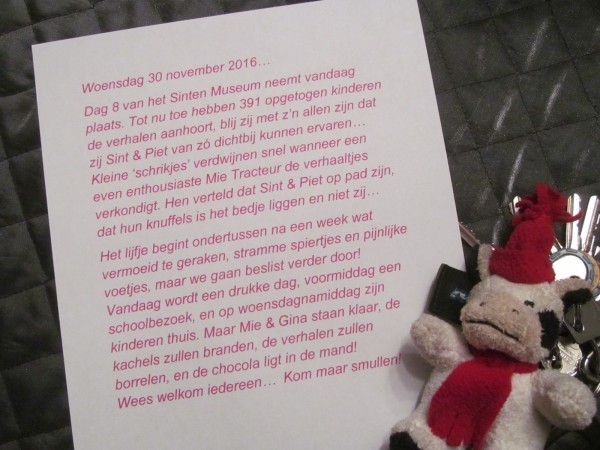 Woensdag 30 november 2016…
Dag 8 van het Sinten Museum neemt vandaag
plaats. Tot nu toe hebben 391 opgetogen kinderen
de verhalen aanhoort, blij zij met z’n allen zijn dat
zij Sint & Piet van zó dichtbij kunnen ervaren…
Kleine ‘schrikjes’ verdwijnen snel wanneer een
even enthousiaste Mie Tracteur de verhaaltjes
verkondigt. Hen verteld dat Sint & Piet op pad zijn,
dat hun knuffels is het bedje liggen en niet zij…
Het lijfje begint ondertussen na een week wat
vermoeid te geraken, stramme spiertjes en pijnlijke
voetjes, maar we gaan beslist verder door!
Vandaag wordt een drukke dag, voormiddag een
schoolbezoek, en op woensdagnamiddag zijn
kinderen thuis. Maar Mie & Gina staan klaar, de
kachels zullen branden, de verhalen zullen
borrelen, en de chocola ligt in de mand!
Wees welkom iedereen… Kom maar smullen!